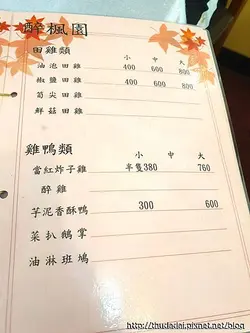 醉楓園
田雞類
小 中 大
油泡田雞 400 600 800
椒鹽田雞 400 600 800
筍尖田雞
鮮菇田雞
雞鴨類
小 中 大
當紅炸子雞 半隻380 760
醉雞
芋泥香酥鴨 300 600
菜扒鵝掌
油淋班鳩
http://thudadai.pixnet.net/blog